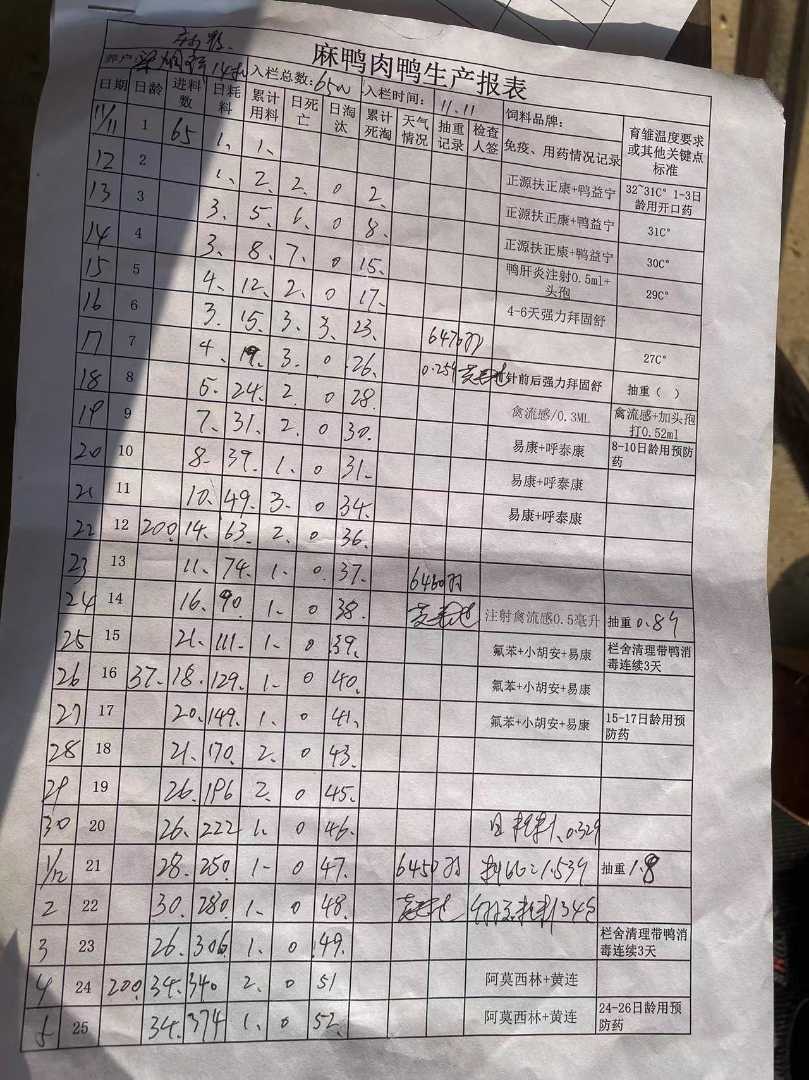 麻鸭肉鸭生产报表
养户 14 入栏总数:6500 入栏时间: 11.11 饲料品牌:
日期 日龄 进料数 日耗料 累计用料 日死亡 日淘汰 累计死淘 天气情况 抽重记录 检查人签 免疫、用药情况记录 育雏温度要求或其他关键点标准
11/11 1 65 1、 1、
12 2 1、 2、 2、 0 2、 正源扶正康+鸭益宁 32~31C° 1-3日龄用开口药
13 3 3、 5、 6、 0 8、 正源扶正康+鸭益宁 31C°
14 4 3、 8、 7、 0 15、 正源扶正康+鸭益宁 30C°
15 5 4、 12、 2、 0 17、 鸭肝炎注射0.5ml+头孢 29C°
16 6 3、 15、 3、 3、 23、 4-6天强力拜固舒
17 7 4、 19、 3、 0 26、 6470羽 0.259 针前后强力拜固舒 27C°
18 8 5、 24、 2、 0 28、 抽重（ ）
19 9 7、 31、 2、 0 30、 禽流感/0.3ML 禽流感+加头孢打0.52ml
20 10 8、 39、 1、 0 31、 易康+呼泰康 8-10日龄用预防药
21 11 10、 49、 3、 0 34、 易康+呼泰康
22 12 200、 14、 63、 2、 0 36、 易康+呼泰康
23 13 11、 74、 1、 0 37、 6460羽
24 14 16、 90、 1、 0 38、 注射禽流感0.5毫升 抽重 0.89
25 15 21、 111、 1、 0 39、 氟苯+小胡安+易康 栏舍清理带鸭消毒连续3天
26 16 37、 18、 129、 1、 0 40、 氟苯+小胡安+易康
27 17 20、 149、 1、 0 41、 氟苯+小胡安+易康 15-17日龄用预防药
28 18 21、 170、 2、 0 43、
29 19 26、 196 2、 0 45、
30 20 26、 222 1、 0 46、 0.329
1/12 21 28、 250、 1、 0 47、 6450羽 料比=1.539 抽重 1.8
2 22 30、 280、 1、 0 48、
3 23 26、 306、 1、 0 49、 栏舍清理带鸭消毒连续3天
4 24 200、 34、 340 2、 0 51 阿莫西林+黄连
5 25 34、 374 1、 0 52、 阿莫西林+黄连 24-26日龄用预防药